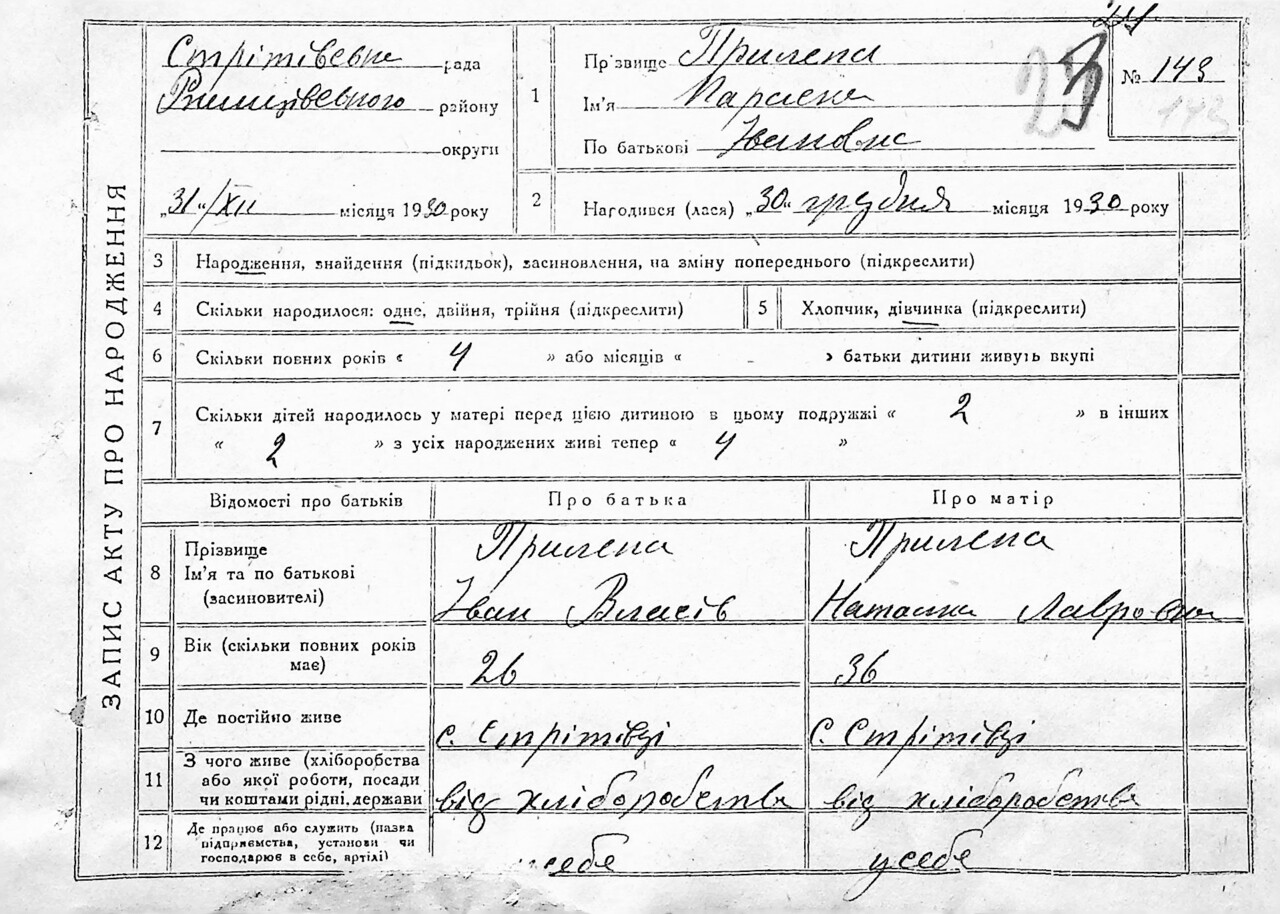 ЗАПИС АКТУ ПРО НАРОДЖЕННЯ
Стрітівська рада
району
округи
„31“/XII місяця 1930 року
1
Пр'звище Прилепа
Ім'я Параска
По батькові Івановна
23
№ 143
143
2
Народився (лася) „30“ грудня місяця 1930 року
3 Народження, знайдення (підкидьок), засиновлення, на зміну попереднього (підкреслити)
4 Скільки народилося: одне, двійня, трійня (підкреслити)
5 Хлопчик, дівчинка (підкреслити)
6 Скільки повних років « 4 » або місяців « - » батьки дитини живуть вкупі
7 Скільки дітей народилось у матері перед цією дитиною в цьому подружжі « 2 » в інших
« 2 » з усіх народжених живі тепер « 4 »
Відомості про батьків Про батька Про матір
8 Прізвище Прилепа Прилепа
Ім'я та по батькові Іван Власів Наталка Лавровна
(засиновителі)
9 Вік (скільки повних років 26 36
має)
10 Де постійно живе с. Стрітівці с. Стрітівці
11 З чого живе (хліборобства
або якої роботи, посади
чи коштами рідні, держави від хліборобства від хліборобства
12 Де працює або служить (назва
підприємства, установи чи
господарює в себе, артілі) у себе у себе